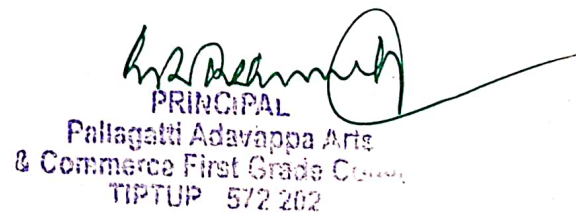 PRINCIPAL
Pallagatti Adavappa Arts
& Commerce First Grade
TIPTUP 572 202